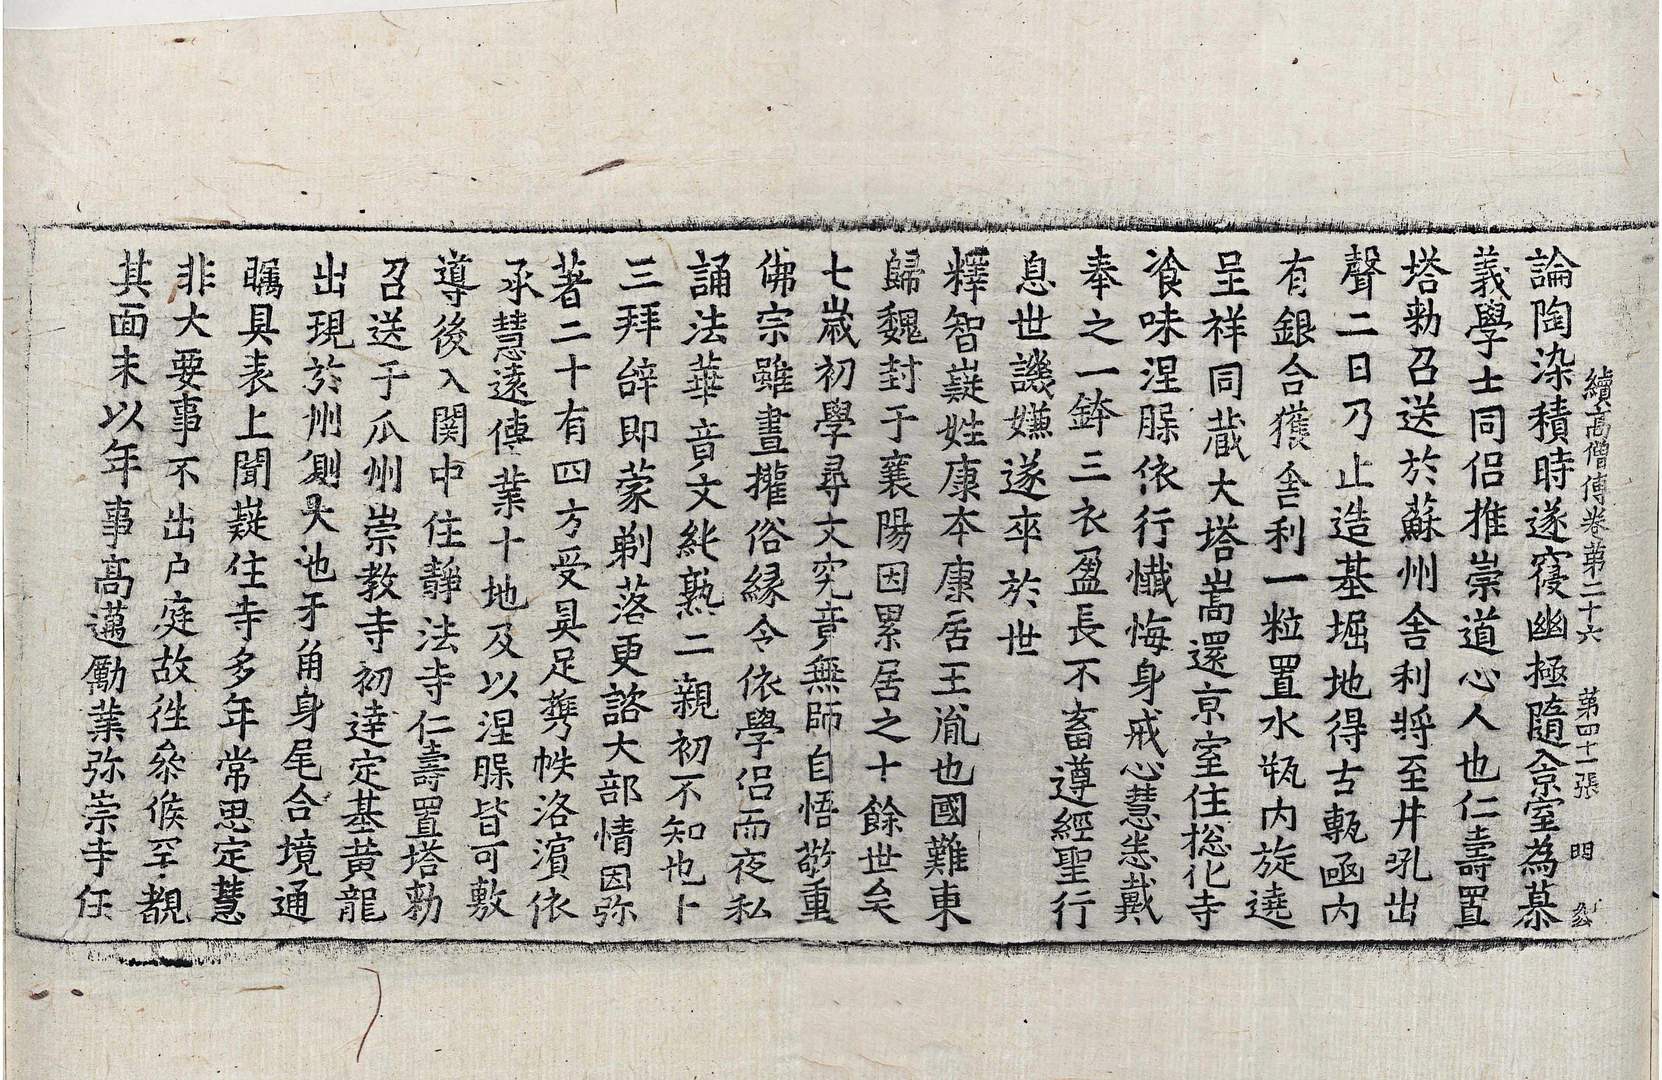 續高僧傳卷第二十六 第四十一張 明
論陶染積時遂寢幽極隨入京室為慕
義學士同侶推崇道心人也仁壽置
塔勑召送於蘇州舍利將至井吼出
聲二日乃止造基堀地得古甎函内
有銀合獲舍利一粒置水瓶内旋遶
呈祥同藏大塔嵩還京室住揔化寺
飡味涅槃依行懺悔身戒心慧悉戴
奉之一鉢三衣盈長不畜遵經聖行
息世譏嫌遂卒於世
釋智嶷姓康本康居王胤也國難東
歸魏封于襄陽因累居之十餘世矣
七歲初學尋文究竟無師自悟敬重
佛宗雖晝權俗緣令依學侶而夜私
誦法華音文純熟二親初不知也
三拜辞即蒙剃落更諮大部情因弥
著二十有四方受具足携帙洛濱依
承慧遠傳業十地及以涅槃皆可敷
導後入關中住靜法寺仁壽置塔勑
召送于瓜州崇教寺初達定基黃龍
出現於州側大池牙角身尾合境通
矚具表上聞嶷住寺多年常思定慧
非大要事不出户庭故徃叅候罕覩
其面末以年事高邁勵業弥崇寺任